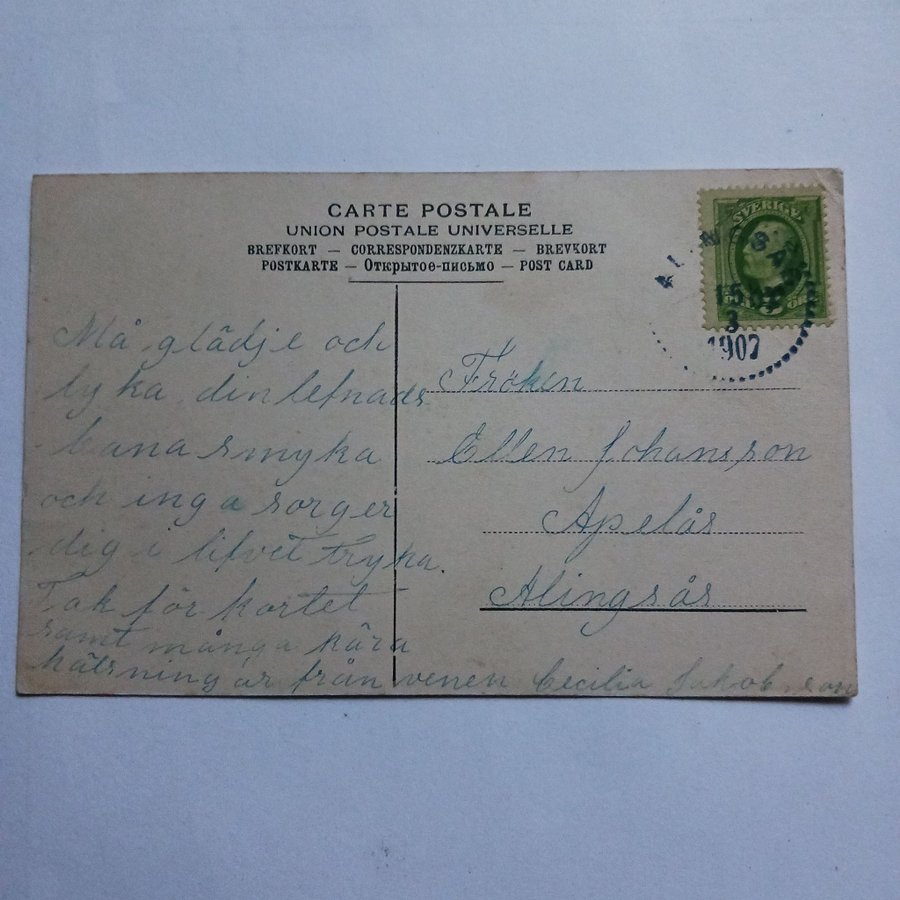 CARTE POSTALE
UNION POSTALE UNIVERSELLE
BREFKORT — CORRESPONDENZKARTE — BREVKORT
POSTKARTE — Открытое-письмо — POST CARD
SVERIGE
ALINGSÅS
15
3
1907
Må glädje och
lyka din lefnads
bana smyka
och inga sorger
dig i lifvet tryka.
Tak för kortet
samt många kära
hälsningar från venen Cecilia Jakobsson
Fröken
Ellen Johansson
Apelås
Alingsås